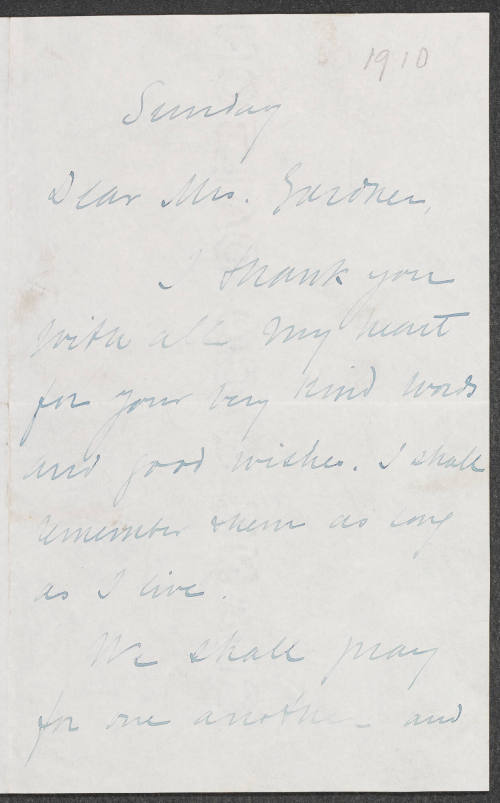 1910
Sunday
Dear Mrs. Gardner,
I thank you
with all my heart
for your very kind words
and good wishes. I shall
remember them as long
as I live.
We shall pray
for one another – and